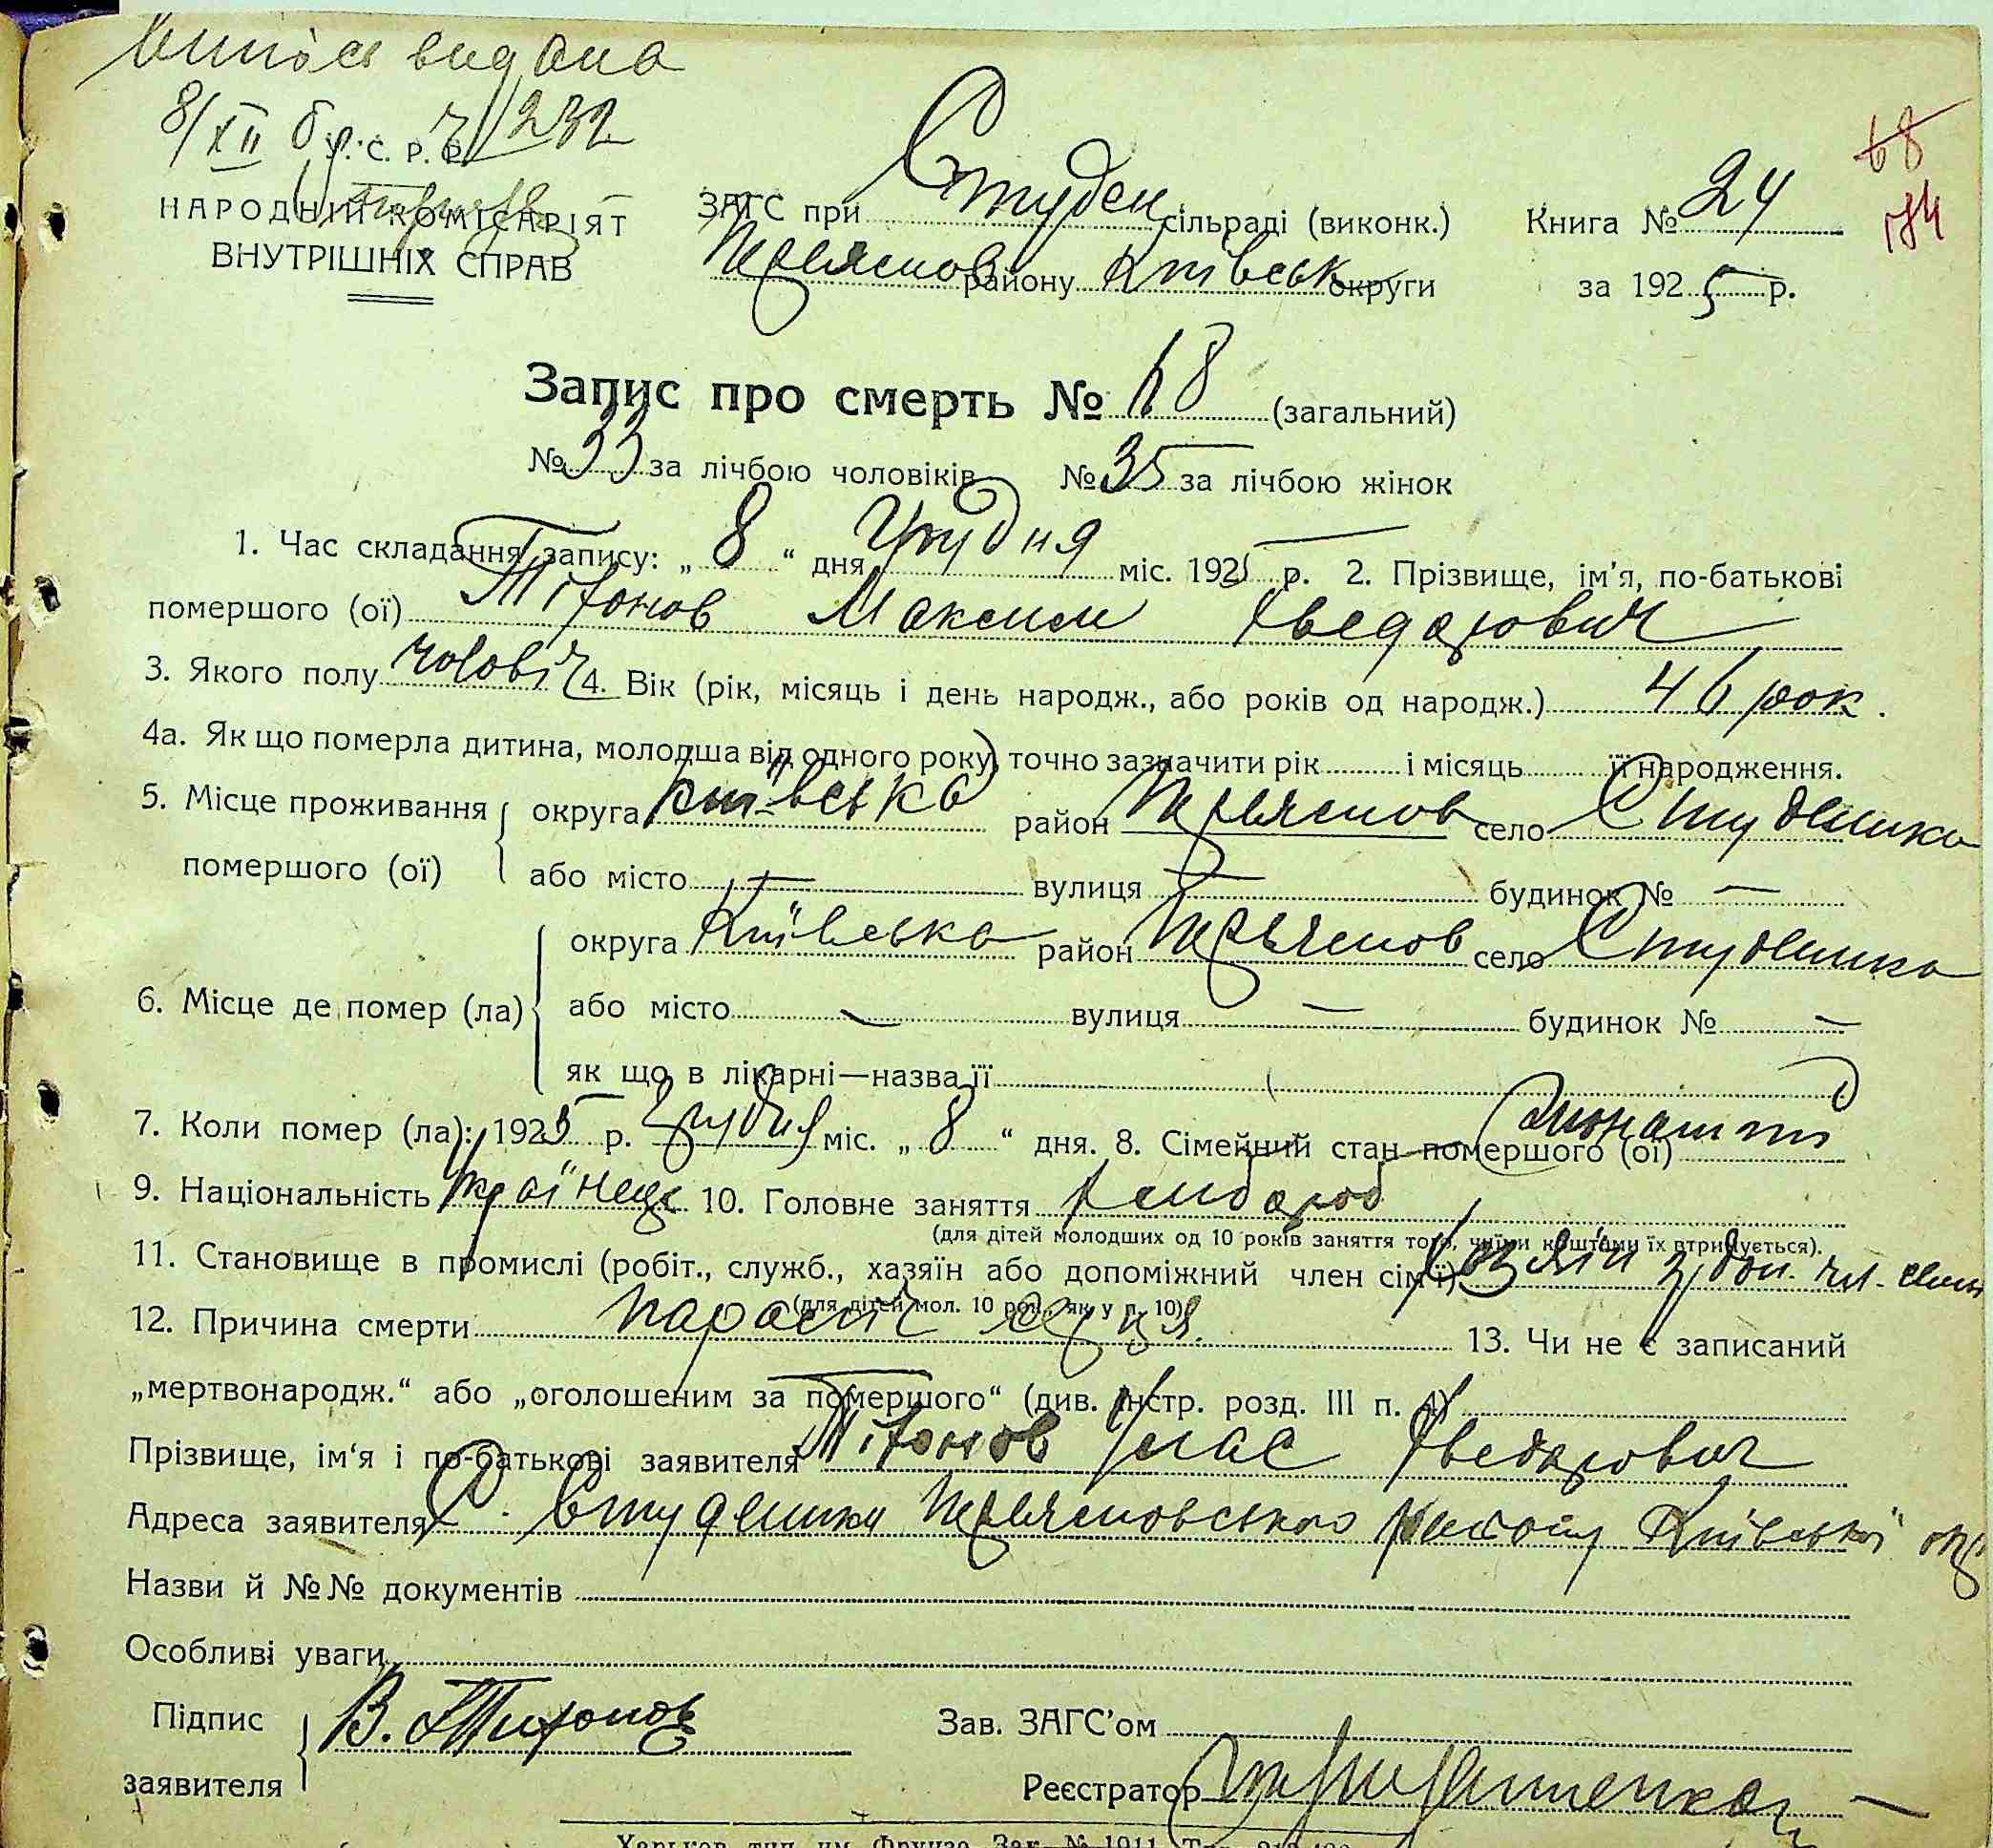 Випись видана
8/XII б.р. ч 232
У. С. Р. Р.
НАРОДНІЙ КОМІСАРІЯТ
ВНУТРІШНІХ СПРАВ
ЗАГС при Студен сільраді (виконк.)
Переяслов району Київськ округи
Книга № 24
за 1925 р.
68
184
Запис про смерть № 68 (загальний)
№ 33 за лічбою чоловіків № 35 за лічбою жінок
1. Час складання запису: „ 8 “ дня Грудня міс. 1925 р. 2. Прізвище, ім’я, по-батькові
помершого (ої) Тіхонов Максим Хведорович
3. Якого полу чоловіч 4. Вік (рік, місяць і день народж., або років од народж.) 46 рок.
4а. Як що померла дитина, молодша від одного року, точно зазначити рік і місяць її народження.
5. Місце проживання помершого (ої) округа Київська район Переяслов село Студеники
або місто — вулиця — будинок № —
6. Місце де помер (ла) округа Київська район Переяслов село Студеники
або місто — вулиця — будинок № —
як що в лікарні—назва її
7. Коли помер (ла): 1925 р. Грудня міс. „ 8 “ дня. 8. Сімейний стан помершого (ої) жонатий
9. Національність Українець 10. Головне заняття хлібороб
(для дітей молодших од 10 років заняття того, чиїми коштами їх втримується).
11. Становище в промислі (робіт., служб., хазяїн або допоміжний член сім’ї) Хазяїн
(для дітей мол. 10 рок., як у п. 10)
12. Причина смерти 13. Чи не є записаний
„мертвонародж.“ або „оголошеним за помершого“ (див. інстр. розд. III п. 4)
Прізвище, ім‘я і по-батькові заявителя Тіхонов Улас Хведорович
Адреса заявителя С. Студеники Переясловського району Київської окр
Назви й №№ документів
Особливі уваги
Підпис заявителя В. Тихонов
Зав. ЗАГС’ом
Реєстратор
Харьков, тип. им. Фрунзе. Зак. № 1911